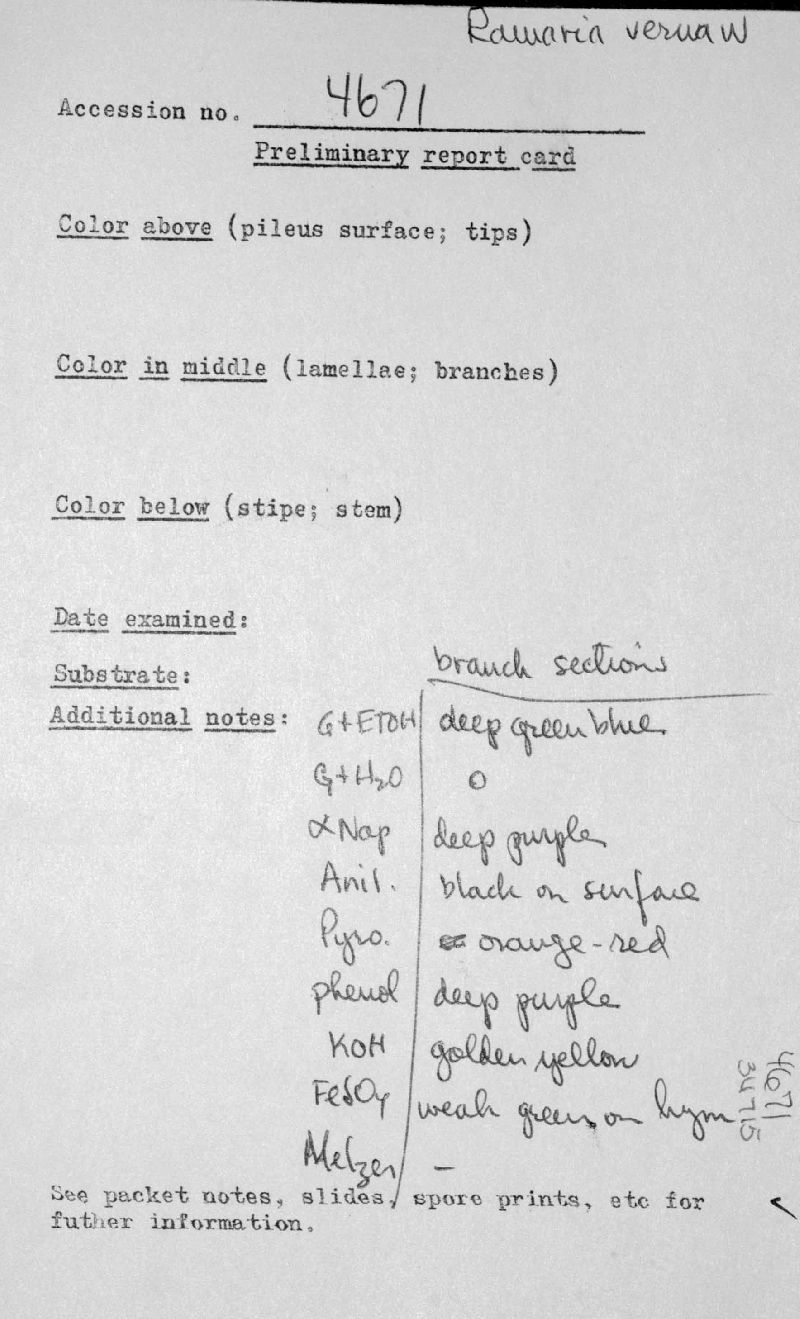 Ramaria vernaw
Accession no. 4671
Preliminary report card
Color above (pileus surface; tips)
Color in middle (lamellae; branches)
Color below (stipe; stem)
Date examined:
Substrate:
branch sections
Additional notes: G+ETOH deep green blue
G+H2O O
αNap deep purple
Anil. black on surface
Pyro. orange-red
phenol deep purple
KOH golden yellow
FeSO4 weak green on hym
Melzer –
See packet notes, slides, spore prints, etc for
futher information.
4671
34715